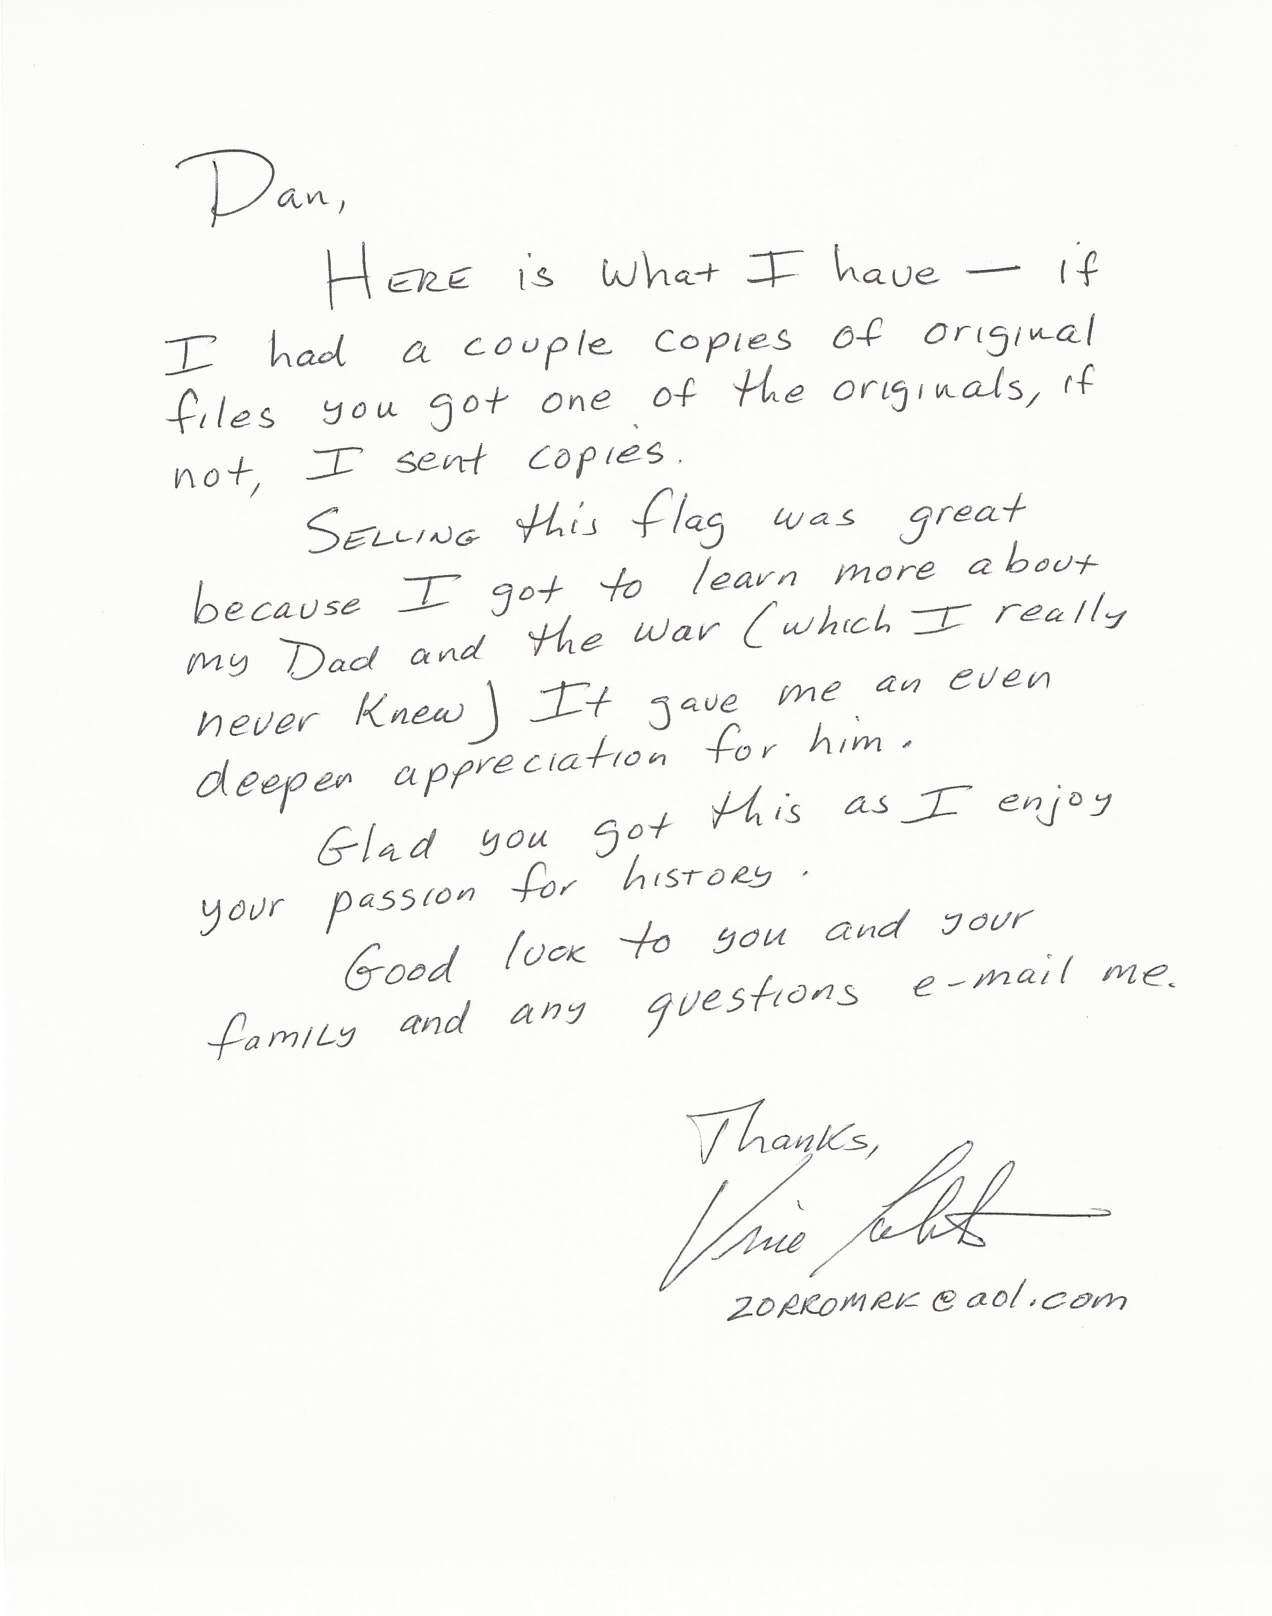 Dan,
HERE is what I have — if
I had a couple copies of original
files you got one of the originals, if
not, I sent copies.
SELLING this flag was great
because I got to learn more about
my Dad and the war (which I really
never knew) It gave me an even
deeper appreciation for him.
Glad you got this as I enjoy
your passion for history.
Good luck to you and your
family and any questions e-mail me.
Thanks,
Vince
ZORROMRK@aol.com